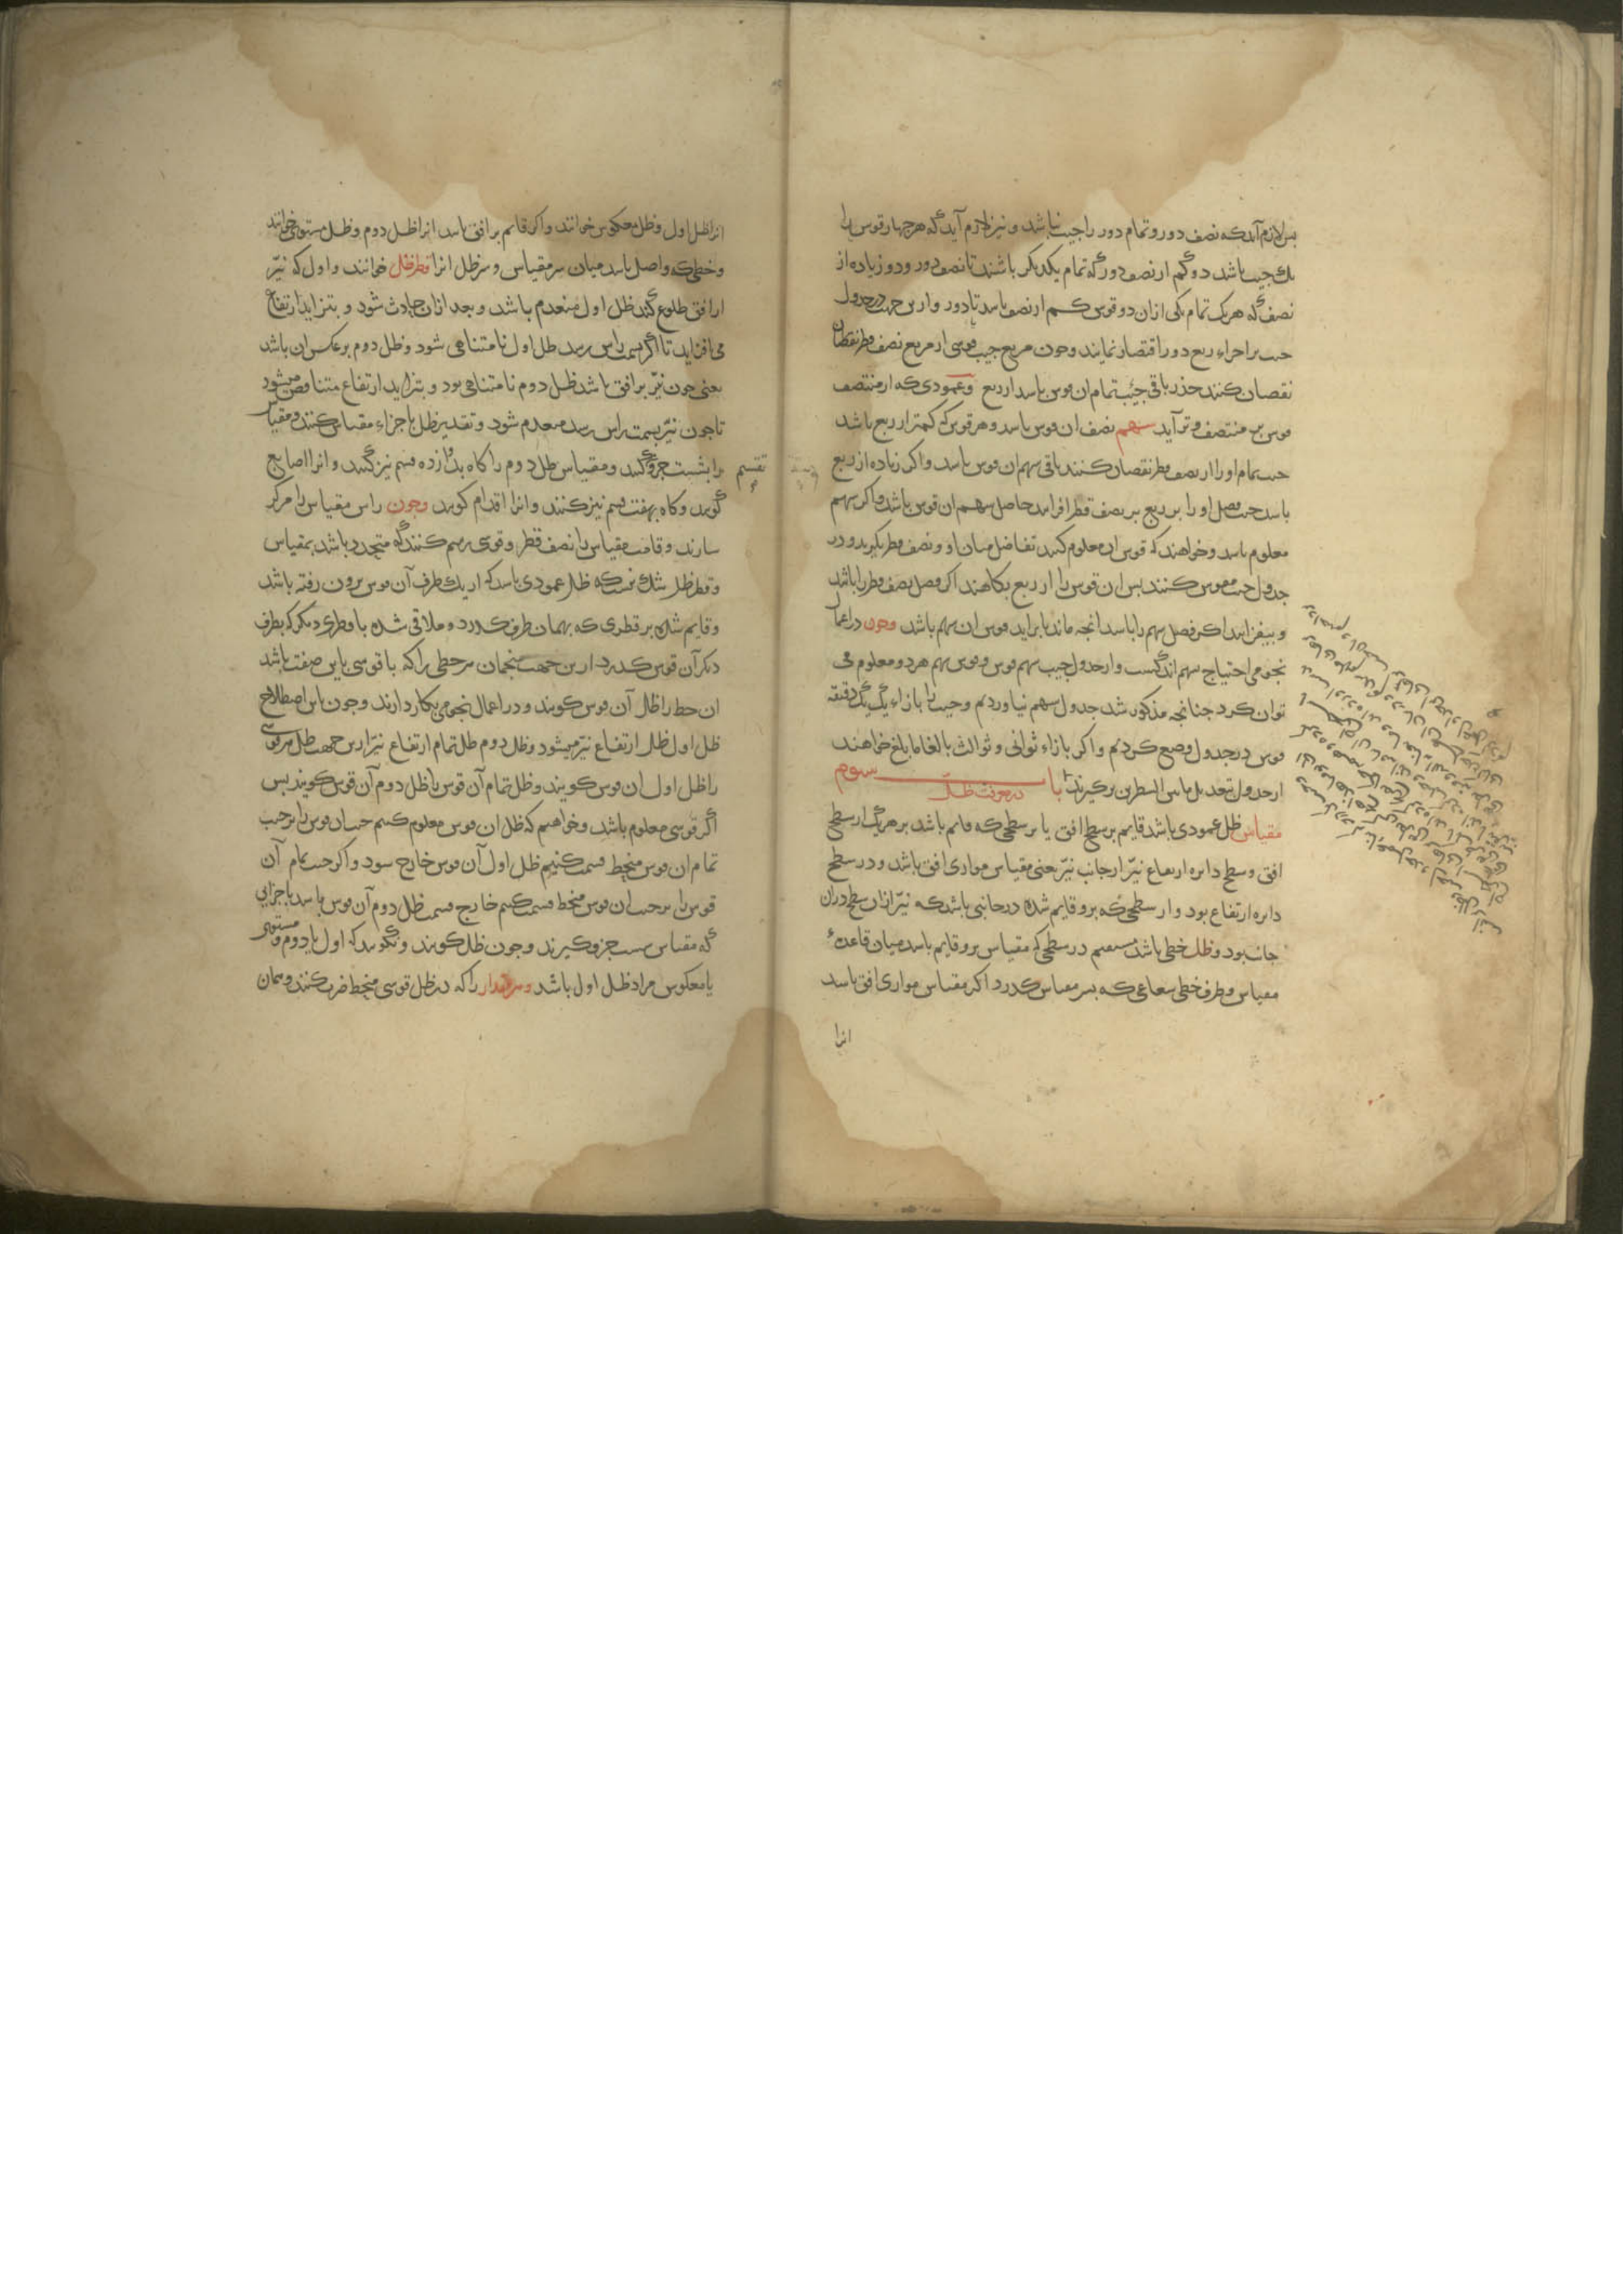 پس لازم آید که نصف دور و تمام دور را جیب نباشد و نیز لازم آید که هر چهار قوس را
یک جیب باشد دو کم از نصف دور که تمام یکدیگر باشند تا نصف دور و دو زیاده از
نصف که هر یک تمام یکی ازان دو قوس کم از نصف باشد تا دور و ازین جهت در جدول
جیب بر اجزاء ربع دور اقتصار نمایند و چون مربع جیب قوسی از مربع نصف قطر
نقصان کنند جذر باقی جیب تمام ان قوس باشد از ربع و عمودی که از منتصف
قوس بر منتصف وتر آید سهم نصف ان قوس باشد و هر قوس که کمتر از ربع باشد
جیب تمام او را از نصف قطر نقصان کنند باقی سهم ان قوس باشد و اگر زیاده از ربع
باشد جیب فضل او را بر ربع بر نصف قطر افزایند حاصل سهم ان قوس باشد و اگر سهم
معلوم باشد و خواهند که قوس ان معلوم کنند تفاضل میان او و نصف قطر بگیرند و در
جدول جیب مقوس کنند پس ان قوس را از ربع بکاهند اگر فضل نصف قطر را باشد
و بیفزایند اگر فضل سهم را باشد انچه ماند یا براید قوس ان سهم باشد و چون در اعمال
نجومی احتیاج بسهم اندکست و از جدول جیب سهم قوس و قوس سهم هر دو معلوم می
توان کرد چنانچه مذکور شد جدول سهم نیاوردیم و جیب را بازاء یک یک دقیقه
قوس در جدول وضع کردیم و اگر بازاء ثوانی و ثوالث بالغا ما بلغ خواهند
از جدول بتعدیل ما بین السطرین برگیرند باب سوم در معرفت ظل
مقیاس ظل عمودی باشد قایم بر سطح افق یا بر سطحی که قایم باشد بر هر یک از سطح
افق و سطح دایره ارتفاع نیّر از جانب نیّر یعنی مقیاس موازی افق باشد و در سطح
دایره ارتفاع بود و از سطحی که برو قایم شده در جانبی باشد که نیّر ازان سطح دران
جانب بود و ظل خطی باشد مستقیم در سطحی که مقیاس برو قایم باشد میان قاعده
مقیاس و طرف خطی شعاعی که بسر مقیاس گذرد اگر مقیاس موازی افق باشد
انرا
انرا ظل اول و ظل معکوس خوانند و اگر قایم بر افق باشد انرا ظل دوم و ظل مستوی خوانند
و خطی که واصل باشد میان سر مقیاس و سر ظل انرا قطر ظل خوانند و اول که نیّر
از افق طلوع کند ظل اول منعدم باشد و بعد ازان حادث شود و بتزاید ارتفاع
می افزاید تا اگر بسمت راس رسد ظل اول نامتناهی شود و ظل دوم بر عکس ان باشد
یعنی چون نیّر بر افق باشد ظل دوم نامتناهی بود و بتزاید ارتفاع متناقص میشود
تا چون نیّر بسمت راس رسد منعدم شود و تقدیر ظل باجزاء مقیاس کنند و مقیاس
را بشست جزو کنند و مقیاس ظل دوم را گاه بدوازده قسم نیز کنند و انرا اصابع
تقسیم
گویند و گاه بهفت قسم نیز کنند و انرا اقدام گویند و چون راس مقیاس را مرکز
سازند و قامت مقیاس را نصف قطر و قوسی رسم کنند که متحدد باشد بمقیاس
و قطر ظل شک نیست که ظل عمودی باشد که از یک طرف آن قوس برون رفته باشد
و قایم شده بر قطری که بهمان طرف گذرد و ملاقی شده با قطری دیگر که بطرف
دیگر آن قوس گذرد ازین جهت منجمان هر خطی را که با قوسی باین صفت باشد
ان خط را ظل آن قوس گویند و در اعمال نجومی بکار دارند و چون باین اصطلاح
ظل اول ظل ارتفاع نیّر میشود و ظل دوم ظل تمام ارتفاع نیّر ازین جهت ظل هر قوسی
را ظل اول ان قوس گویند و ظل تمام آن قوس را ظل دوم آن قوس گویند پس
اگر قوسی معلوم باشد و خواهیم که ظل ان قوس معلوم کنیم جیب ان قوس را بر جیب
تمام ان قوس منحط قسمت کنیم ظل اول آن قوس خارج شود و اگر جیب تمام آن
قوس را بر جیب ان قوس منحط قسمت کنیم خارج قسمت ظل دوم آن قوس باشد باجزایی
که مقیاس شست جزو گیرند و چون ظل گویند و نگویند که اول یا دوم و مستوی
یا معکوس مراد ظل اول باشد و هر مقدار را که در ظل قوسی منحط ضرب کنند و همان